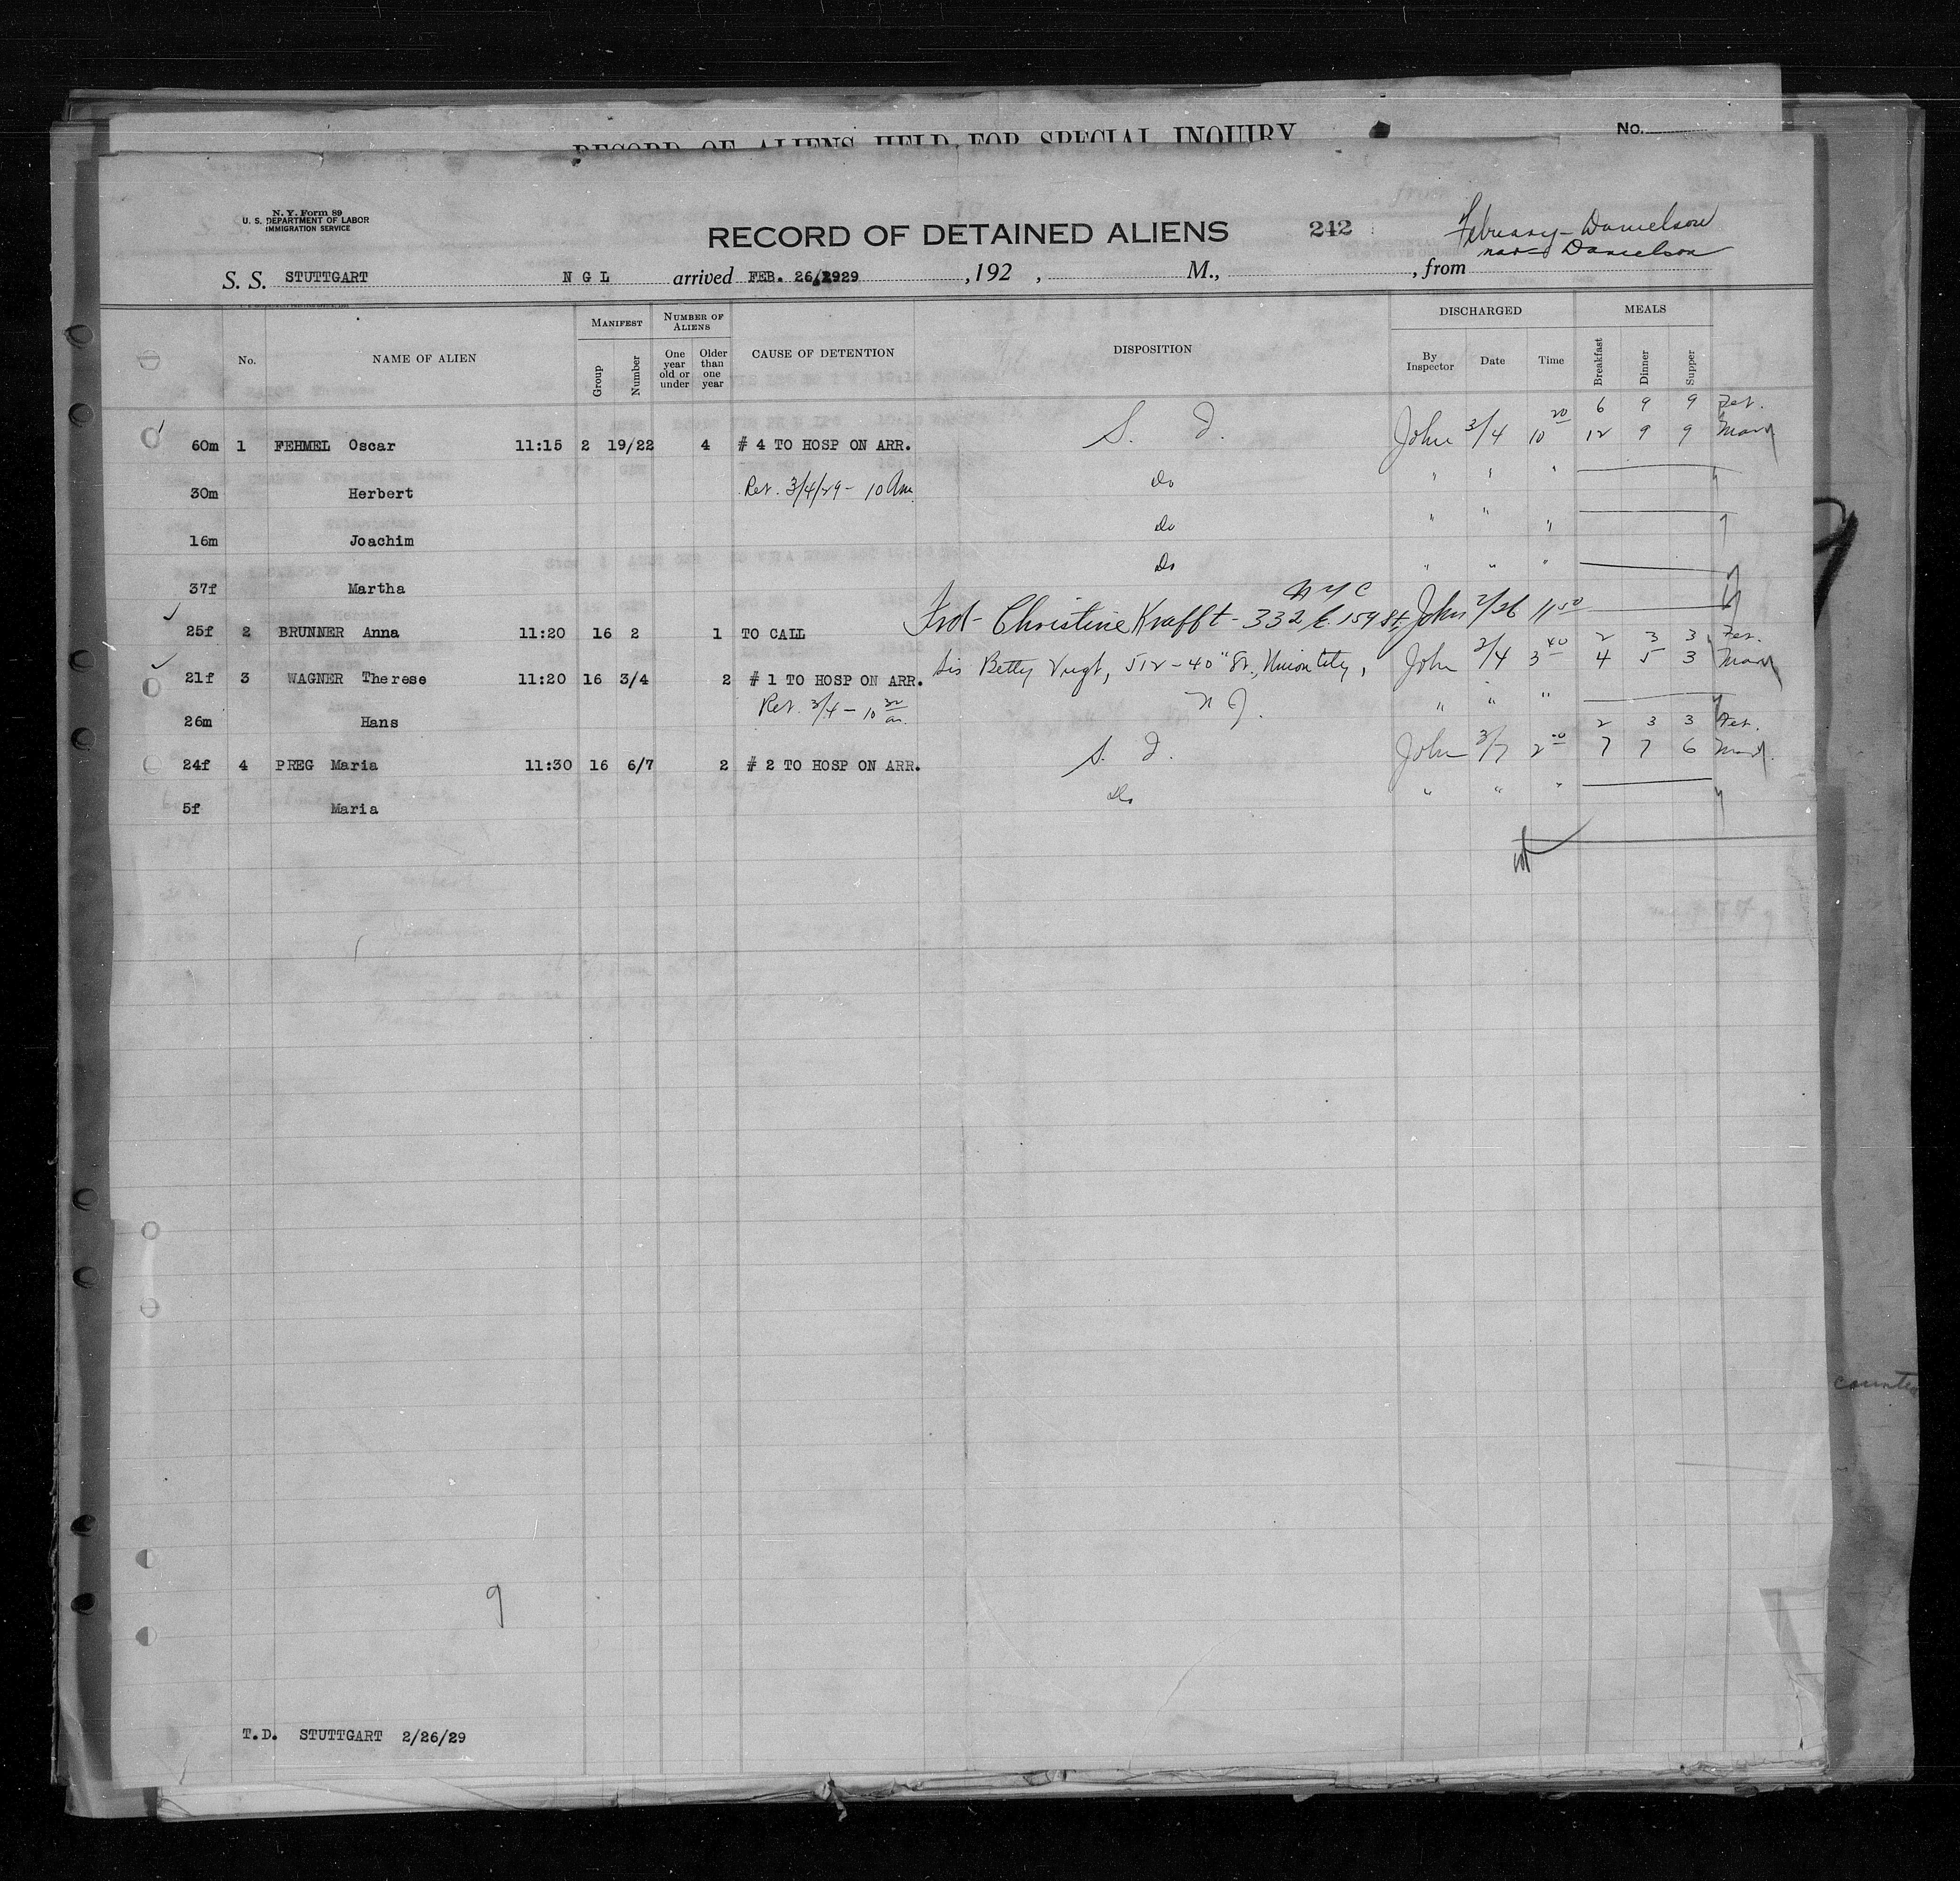 RECORD OF ALIENS HELD FOR SPECIAL INQUIRY No.
N. Y. Form 89
U. S. DEPARTMENT OF LABOR
IMMIGRATION SERVICE
RECORD OF DETAINED ALIENS 242 February - Danielson
Danielson
S. S. STUTTGART N G L arrived FEB. 26, 1929 , 192 , M., , from
No. NAME OF ALIEN MANIFEST Group Number NUMBER OF ALIENS One year old or under Older than one year CAUSE OF DETENTION DISPOSITION DISCHARGED By Inspector Date Time MEALS Breakfast Dinner Supper
6 9 9 Feb.
60m 1 FEHMEL Oscar 11:15 2 19/22 4 # 4 TO HOSP ON ARR. S. I. John 3/4 10 20 12 9 9 March
30m Herbert Ret. 3/4/29 - 10 Am Do " " "
16m Joachim Do " " "
37f Martha Do " " "
N Y C
25f 2 BRUNNER Anna 11:20 16 2 1 TO CALL Christine Krafft - 332 E. 159 St, John 2/26 11 50
2 3 3 Feb.
21f 3 WAGNER Therese 11:20 16 3/4 2 # 1 TO HOSP ON ARR. sis Betty Vogt, 512 - 40" St., Union City, John 3/4 3 40 4 5 3 March
26m Hans Ret. 3/4 - 10 30 am. N J. " " "
2 3 3 Feb.
24f 4 PREG Maria 11:30 16 6/7 2 # 2 TO HOSP ON ARR. S. I. John 3/7 2 40 7 7 6 March
5f Maria Do " " "
counted
9
T.D. STUTTGART 2/26/29